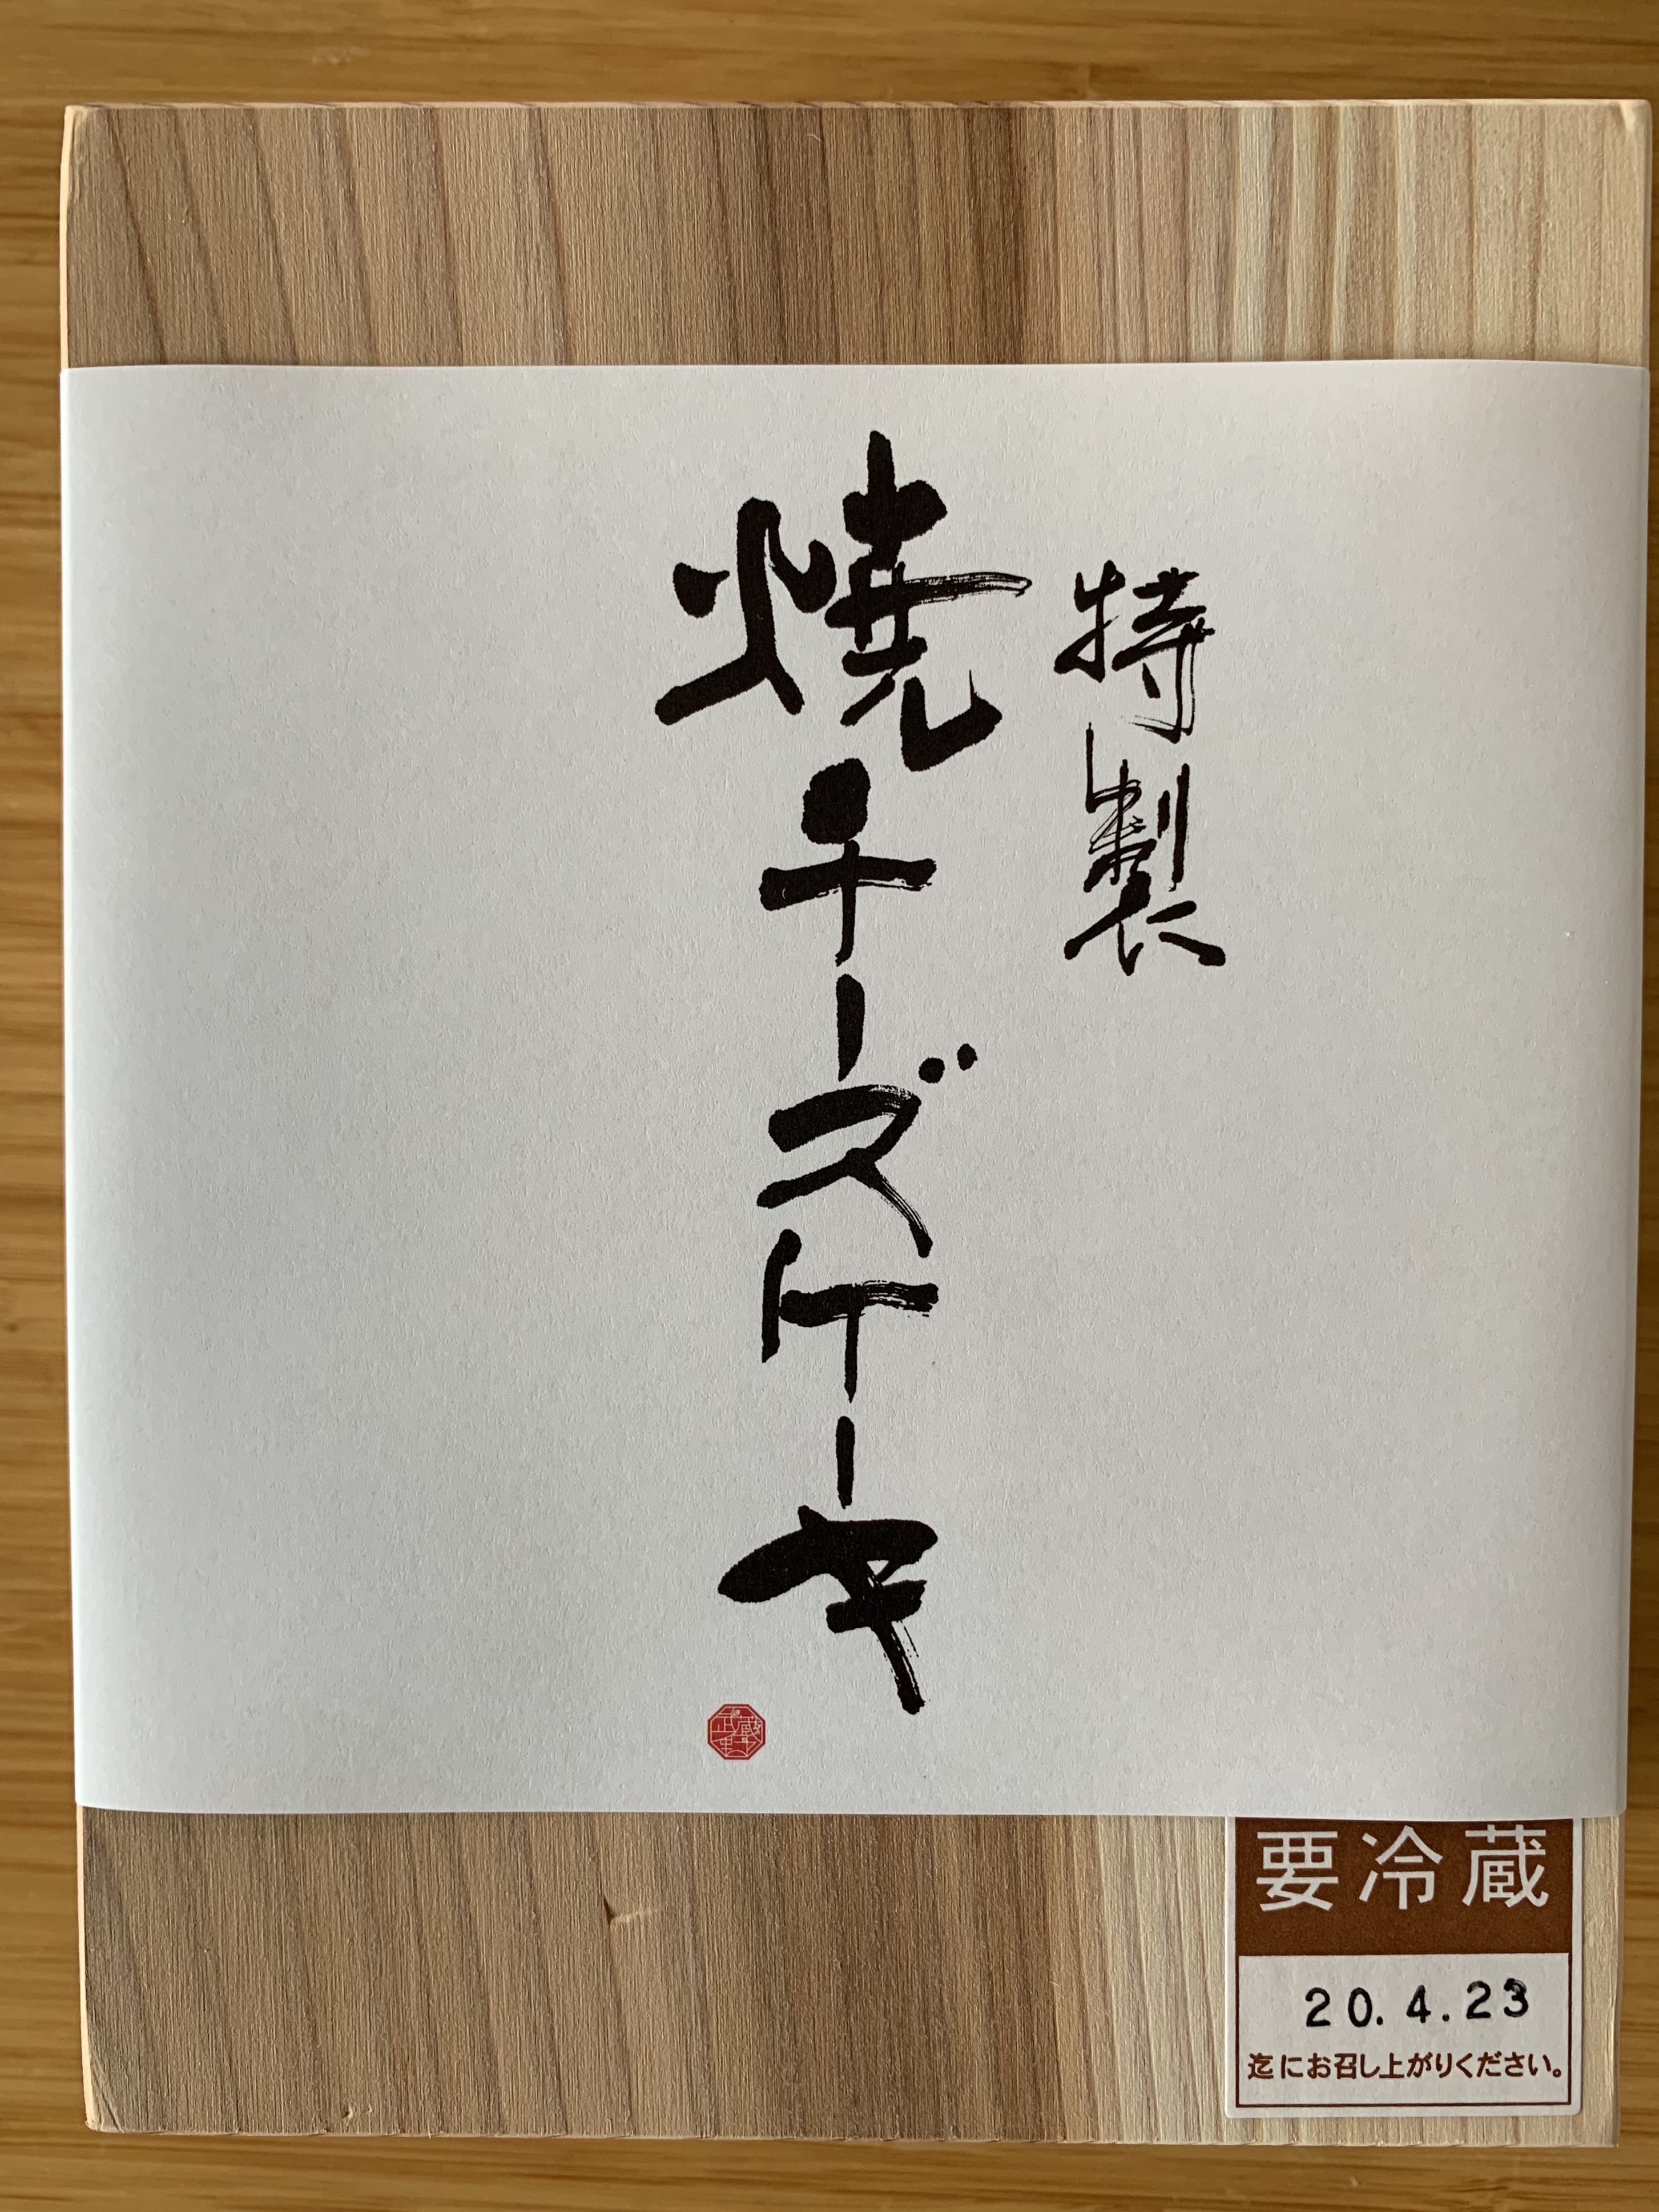 特製
焼チーズケーキ
要冷蔵
20.4.23
迄にお召し上がりください。